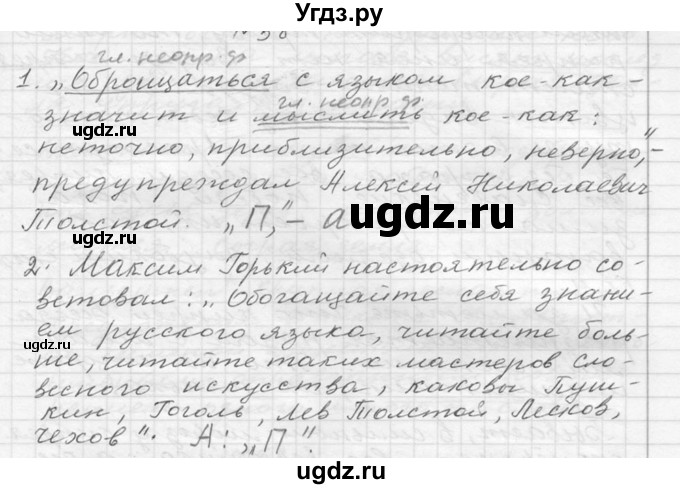 Угдз.ру
№ 58
гл. неопр. ф
1. „Обращаться с языком кое-как –
гл. неопр. ф.
значит и мыслить кое-как:
неточно, приблизительно, неверно,” –
предупреждал Алексей Николаевич
Толстой. „П,” – а
2. Максим Горький настоятельно со-
ветовал: „Обогащайте себя знани-
ем русского языка, читайте боль-
ше, читайте таких мастеров сло-
весного искусства, каковы Пуш-
кин, Гоголь, Лев Толстой, Лесков,
Чехов”. А: „П”.
ugdz.ru
ugdz.ru
ugdz.ru
ugdz.ru
ugdz.ru
ugdz.ru